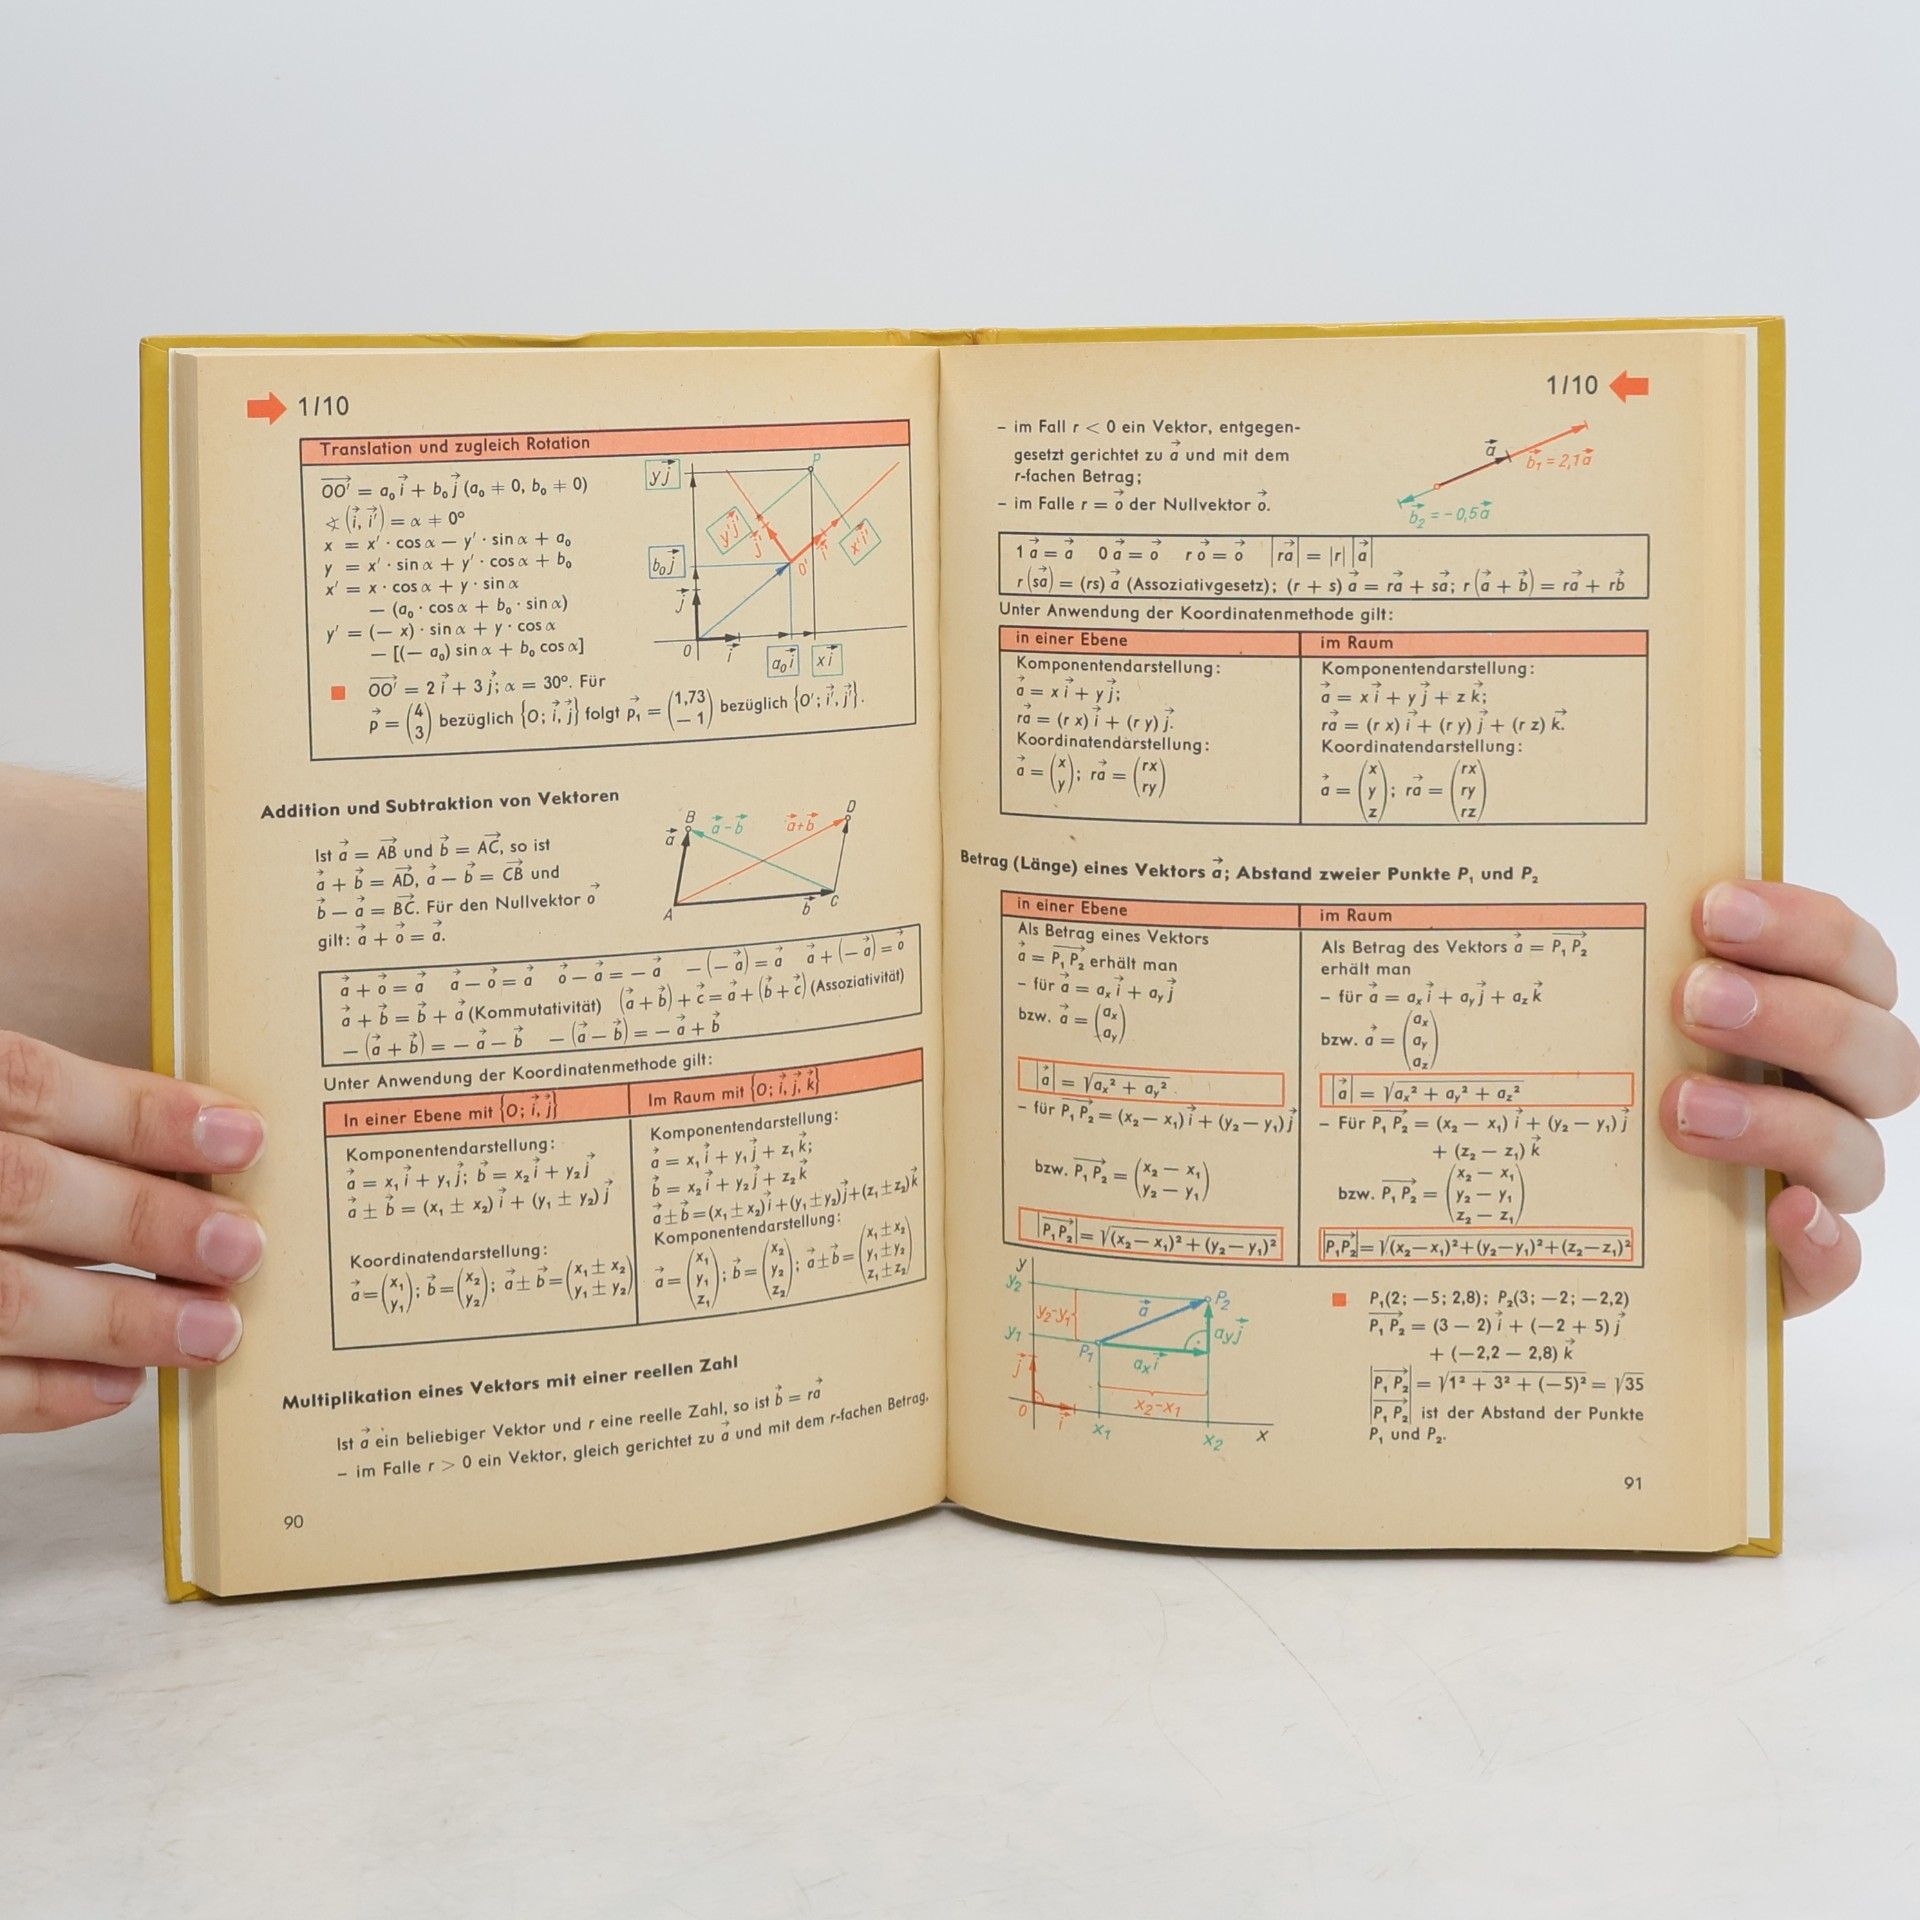 1/10
Translation und zugleich Rotation
OO⃗' = a₀i⃗ + b₀j⃗ (a₀ ≠ 0, b₀ ≠ 0)
∢ (i⃗, i⃗') = α ≠ 0°
x = x' · cos α − y' · sin α + a₀
y = x' · sin α + y' · cos α + b₀
x' = x · cos α + y · sin α
− (a₀ · cos α + b₀ · sin α)
y' = (− x) · sin α + y · cos α
− [(− a₀) sin α + b₀ cos α]
yj⃗
P
y'j⃗'
j⃗'
i⃗'
x'i⃗'
b₀j⃗
O'
j⃗
0
i⃗
a₀i⃗
xi⃗
OO⃗' = 2 i⃗ + 3 j⃗; α = 30°. Für
p⃗ = (4 3) bezüglich {O; i⃗, j⃗} folgt p⃗₁ = (1,73 − 1) bezüglich {O'; i⃗', j⃗'}.
Addition und Subtraktion von Vektoren
Ist a⃗ = AB⃗ und b⃗ = AC⃗, so ist
a⃗ + b⃗ = AD⃗, a⃗ − b⃗ = CB⃗ und
b⃗ − a⃗ = BC⃗. Für den Nullvektor o⃗
gilt: a⃗ + o⃗ = a⃗.
B
a⃗
a⃗−b⃗
a⃗+b⃗
D
A
b⃗
C
a⃗ + o⃗ = a⃗ a⃗ − o⃗ = a⃗ o⃗ − a⃗ = − a⃗ − (− a⃗) = a⃗ a⃗ + (− a⃗) = o⃗
a⃗ + b⃗ = b⃗ + a⃗ (Kommutativität) (a⃗ + b⃗) + c⃗ = a⃗ + (b⃗ + c⃗) (Assoziativität)
− (a⃗ + b⃗) = − a⃗ − b⃗ − (a⃗ − b⃗) = − a⃗ + b⃗
Unter Anwendung der Koordinatenmethode gilt:
In einer Ebene mit {O; i⃗, j⃗}
Komponentendarstellung:
a⃗ = x₁i⃗ + y₁j⃗; b⃗ = x₂i⃗ + y₂j⃗
a⃗ ± b⃗ = (x₁ ± x₂) i⃗ + (y₁ ± y₂) j⃗
Koordinatendarstellung:
a⃗ = (x₁ y₁); b⃗ = (x₂ y₂); a⃗ ± b⃗ = (x₁ ± x₂ y₁ ± y₂)
Im Raum mit {O; i⃗, j⃗, k⃗}
Komponentendarstellung:
a⃗ = x₁i⃗ + y₁j⃗ + z₁k⃗;
b⃗ = x₂i⃗ + y₂j⃗ + z₂k⃗
a⃗ ± b⃗ = (x₁ ± x₂)i⃗ + (y₁ ± y₂)j⃗ + (z₁ ± z₂)k⃗
Komponentendarstellung:
a⃗ = (x₁ y₁ z₁); b⃗ = (x₂ y₂ z₂); a⃗ ± b⃗ = (x₁ ± x₂ y₁ ± y₂ z₁ ± z₂)
Multiplikation eines Vektors mit einer reellen Zahl
Ist a⃗ ein beliebiger Vektor und r eine reelle Zahl, so ist b⃗ = ra⃗
– im Falle r > 0 ein Vektor, gleich gerichtet zu a⃗ und mit dem r-fachen Betrag,
90
1/10
– im Fall r < 0 ein Vektor, entgegen-
gesetzt gerichtet zu a⃗ und mit dem
r-fachen Betrag;
– im Falle r = o⃗ der Nullvektor o⃗.
a⃗
b⃗₁ = 2,1a⃗
b⃗₂ = −0,5a⃗
1 a⃗ = a⃗ 0 a⃗ = o⃗ r o⃗ = o⃗ |ra⃗| = |r| |a⃗|
r (sa⃗) = (rs) a⃗ (Assoziativgesetz); (r + s) a⃗ = ra⃗ + sa⃗; r (a⃗ + b⃗) = ra⃗ + rb⃗
Unter Anwendung der Koordinatenmethode gilt:
in einer Ebene
Komponentendarstellung:
a⃗ = x i⃗ + y j⃗;
ra⃗ = (r x) i⃗ + (r y) j⃗.
Koordinatendarstellung:
a⃗ = (x y); ra⃗ = (rx ry)
im Raum
Komponentendarstellung:
a⃗ = x i⃗ + y j⃗ + z k⃗;
ra⃗ = (r x) i⃗ + (r y) j⃗ + (r z) k⃗.
Koordinatendarstellung:
a⃗ = (x y z); ra⃗ = (rx ry rz)
Betrag (Länge) eines Vektors a⃗; Abstand zweier Punkte P₁ und P₂
in einer Ebene
Als Betrag eines Vektors
a⃗ = P₁P₂⃗ erhält man
– für a⃗ = aₓ i⃗ + a_y j⃗
bzw. a⃗ = (aₓ a_y)
|a⃗| = √(aₓ² + a_y²)
– für P₁P₂⃗ = (x₂ − x₁) i⃗ + (y₂ − y₁) j⃗
bzw. P₁P₂⃗ = (x₂ − x₁ y₂ − y₁)
|P₁P₂⃗| = √((x₂ − x₁)² + (y₂ − y₁)²)
im Raum
Als Betrag des Vektors a⃗ = P₁P₂⃗
erhält man
– für a⃗ = aₓ i⃗ + a_y j⃗ + a_z k⃗
bzw. a⃗ = (aₓ a_y a_z)
|a⃗| = √(aₓ² + a_y² + a_z²)
– Für P₁P₂⃗ = (x₂ − x₁) i⃗ + (y₂ − y₁) j⃗
+ (z₂ − z₁) k⃗
bzw. P₁P₂⃗ = (x₂ − x₁ y₂ − y₁ z₂ − z₁)
|P₁P₂⃗| = √((x₂ − x₁)² + (y₂ − y₁)² + (z₂ − z₁)²)
y
y₂
y₂−y₁
a⃗
P₂
y₁
P₁
a_y j⃗
aₓ i⃗
j⃗
x₂−x₁
0
i⃗
x₁
x₂
x
P₁(2; −5; 2,8); P₂(3; −2; −2,2)
P₁P₂⃗ = (3 − 2) i⃗ + (−2 + 5) j⃗
+ (−2,2 − 2,8) k⃗
|P₁P₂⃗| = √(1² + 3² + (−5)²) = √35
|P₁P₂⃗| ist der Abstand der Punkte
P₁ und P₂.
91